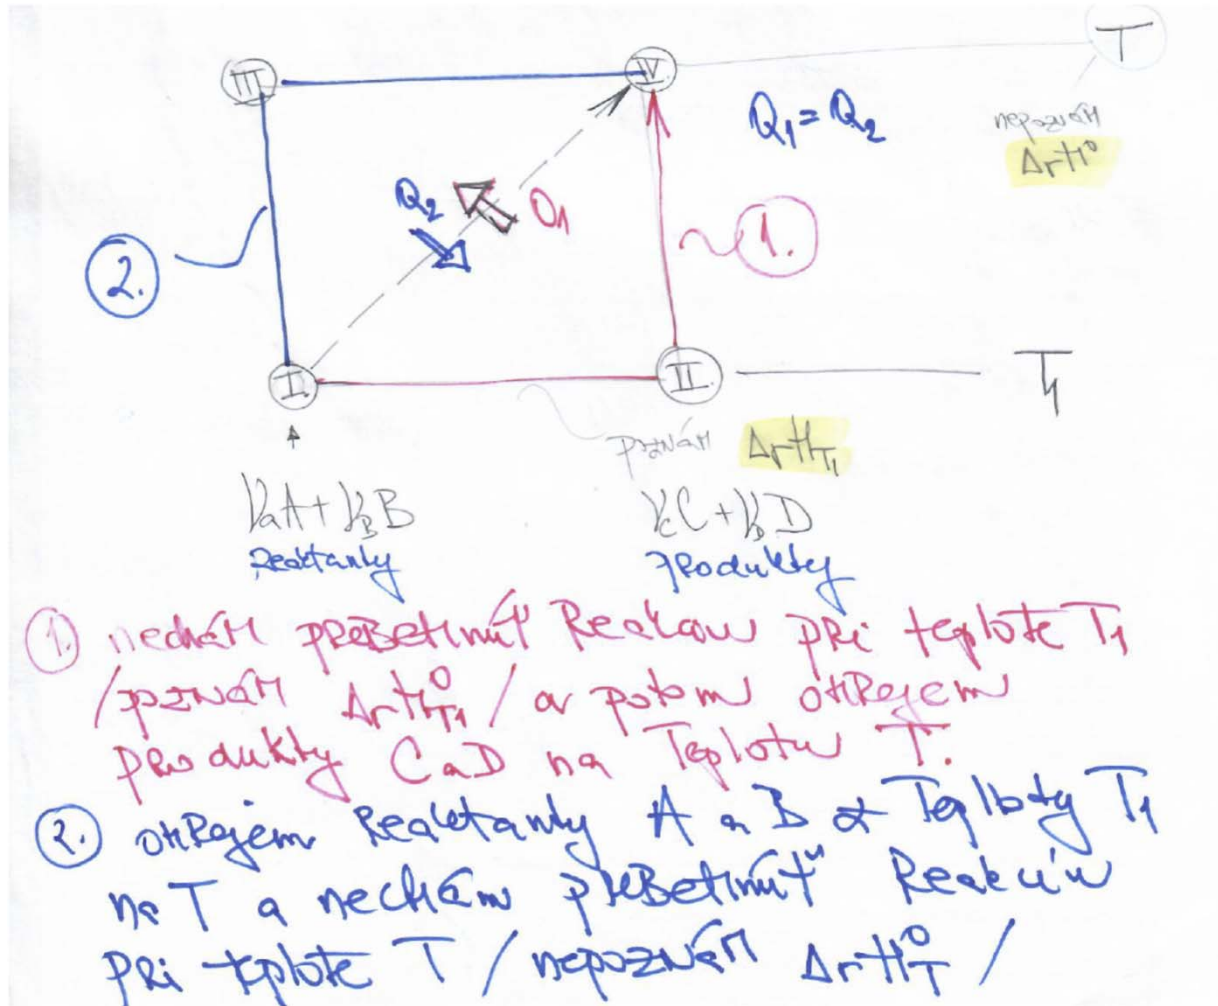 III
IV
T
Q₁ = Q₂
nepoznám
ΔrH⁰
Q₂
Q₁
1.
2.
I
II
T₁
poznám ΔrH_T₁
νaA + νBB
νcC + νDD
Reaktanty
Produkty
1. nechám prebehnúť Reakciu pri teplote T₁
/poznám ΔrH⁰_T₁/ a potom ohrejem
produkty C a D na Teplotu T.
2. ohrejem Reaktanty A a B z Teploty T₁
na T a nechám prebehnúť Reakciu
pri teplote T /nepoznám ΔrH⁰_T /